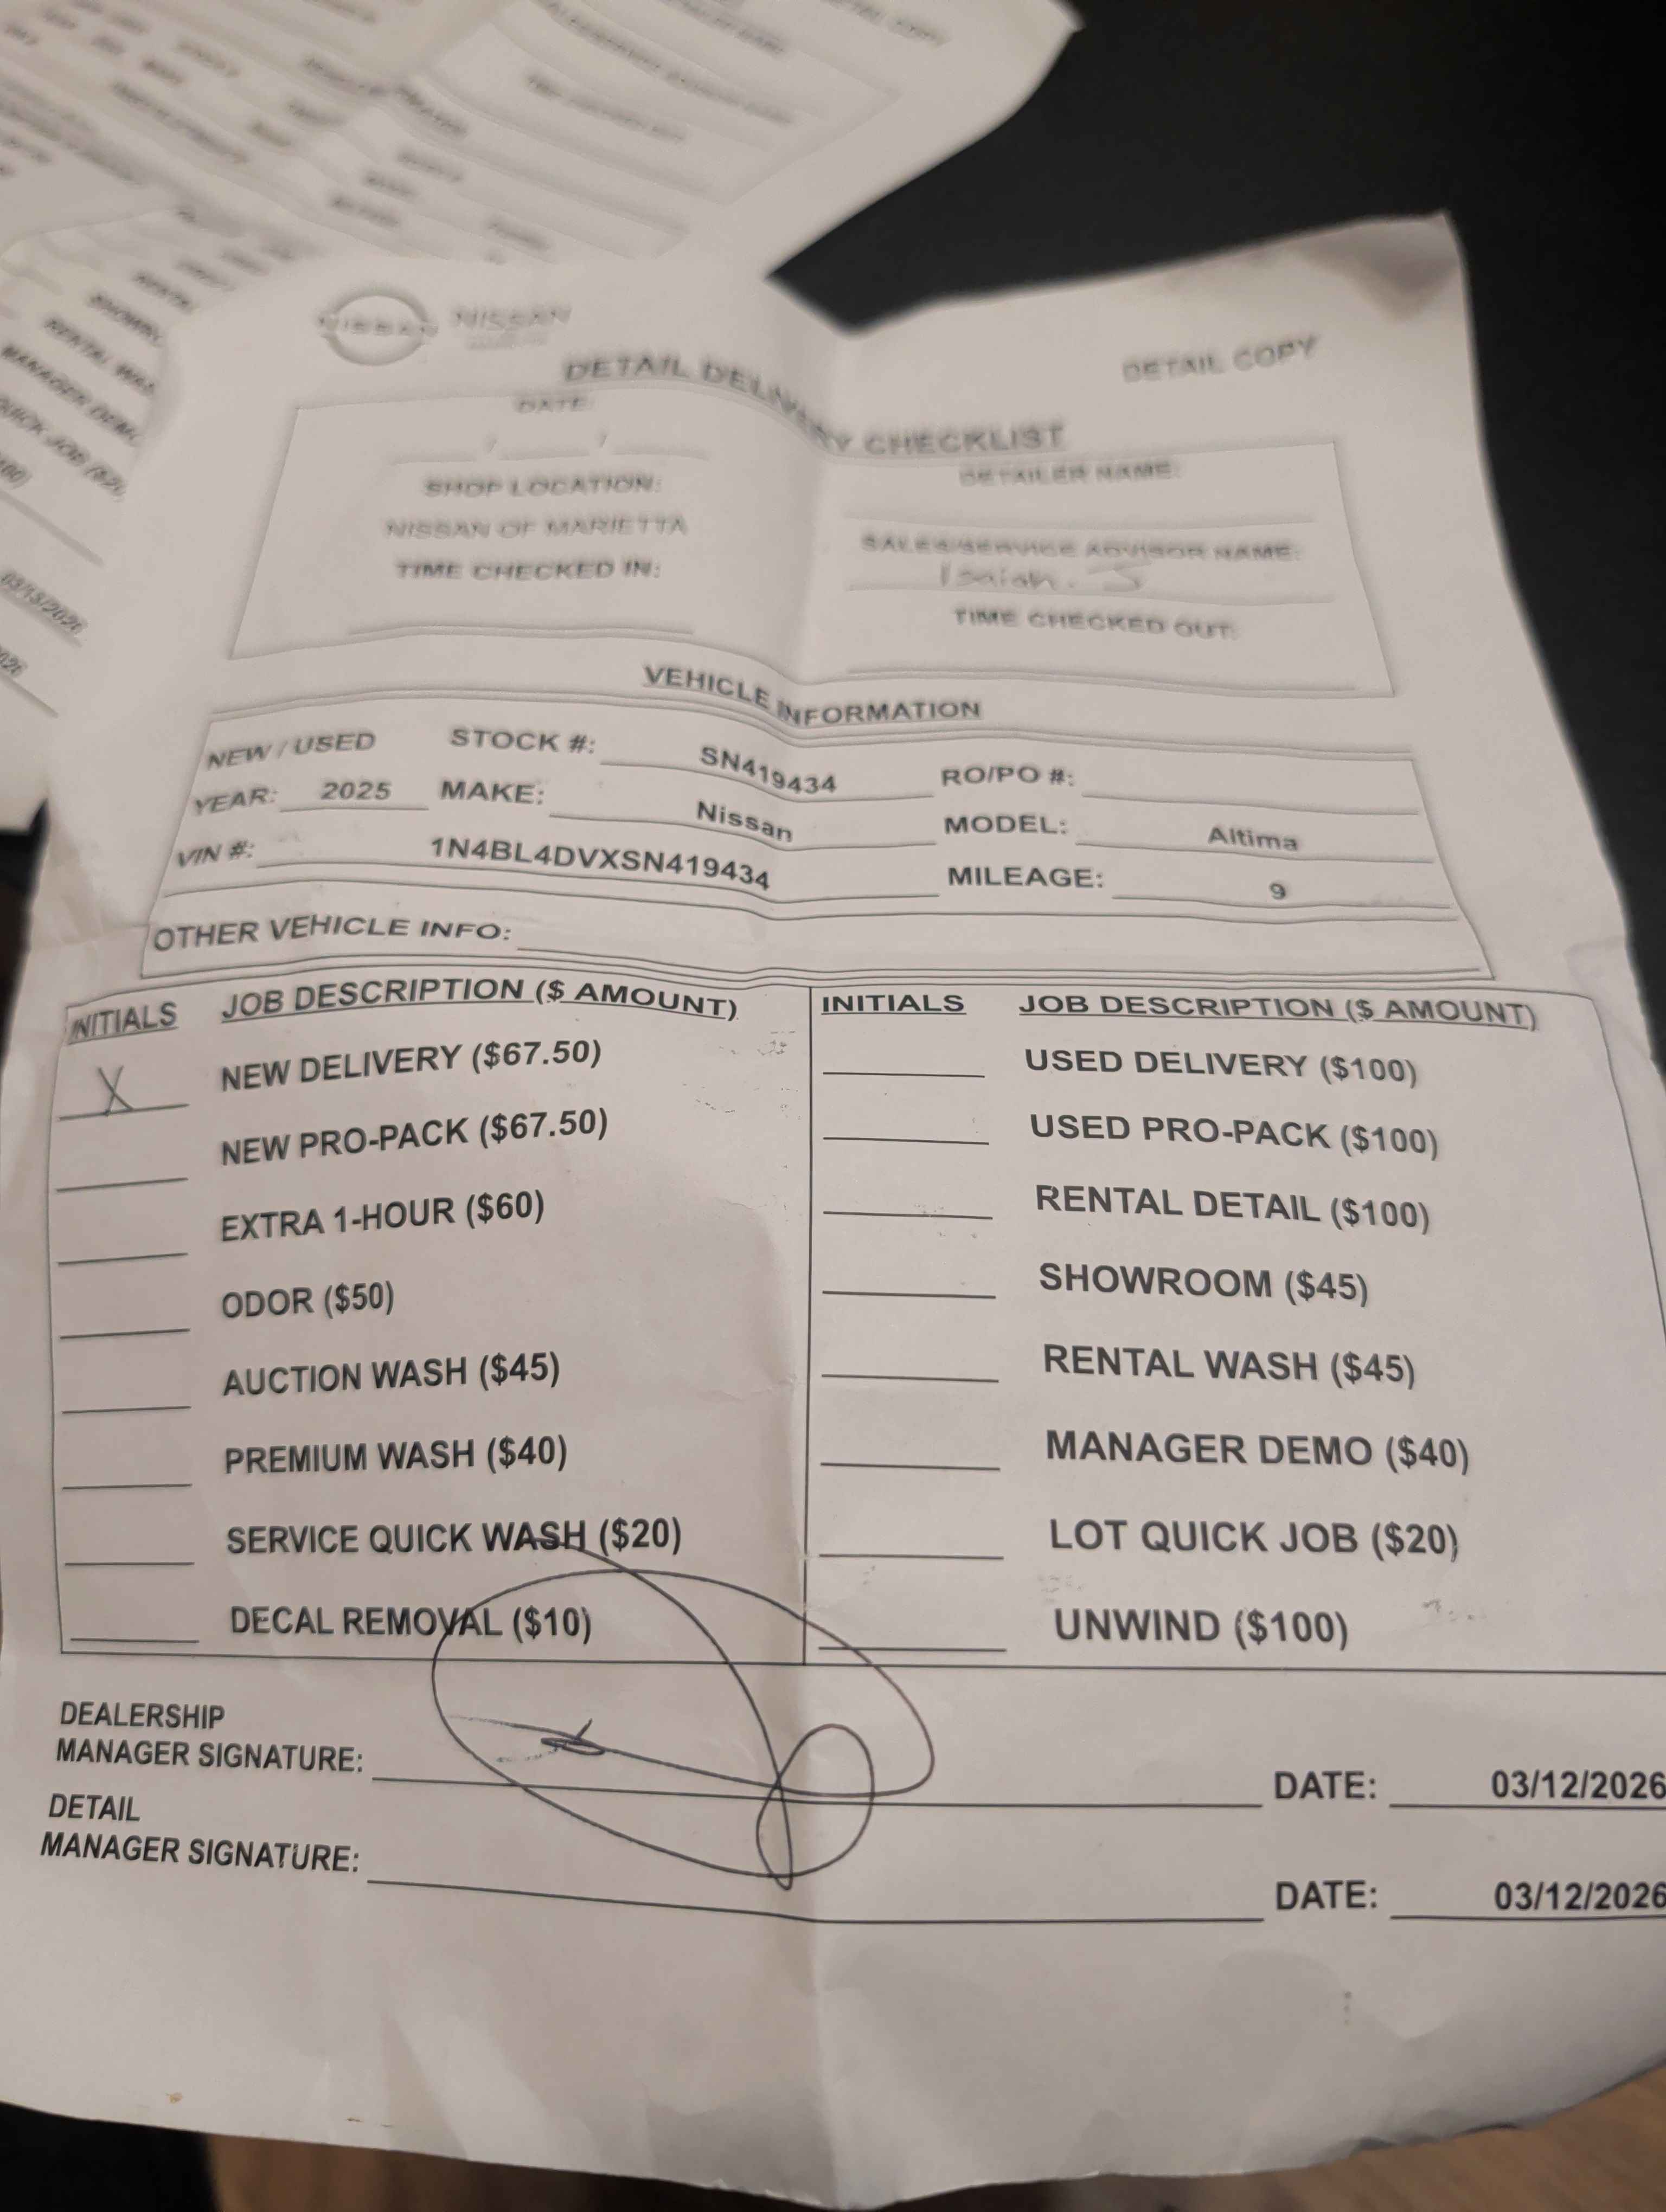 NISSAN NISSAN
DETAIL COPY
DETAIL DELIVERY CHECKLIST
DATE:
/ /
SHOP LOCATION:
NISSAN OF MARIETTA
TIME CHECKED IN:
DETAILER NAME:
SALES/SERVICE ADVISOR NAME:
Isaiah. J
TIME CHECKED OUT:
VEHICLE INFORMATION
NEW / USED STOCK #: SN419434 RO/PO #:
YEAR: 2025 MAKE: Nissan MODEL: Altima
VIN #: 1N4BL4DVXSN419434 MILEAGE: 9
OTHER VEHICLE INFO:
INITIALS JOB DESCRIPTION ($ AMOUNT) INITIALS JOB DESCRIPTION ($ AMOUNT)
X NEW DELIVERY ($67.50) USED DELIVERY ($100)
NEW PRO-PACK ($67.50) USED PRO-PACK ($100)
EXTRA 1-HOUR ($60) RENTAL DETAIL ($100)
ODOR ($50) SHOWROOM ($45)
AUCTION WASH ($45) RENTAL WASH ($45)
PREMIUM WASH ($40) MANAGER DEMO ($40)
SERVICE QUICK WASH ($20) LOT QUICK JOB ($20)
DECAL REMOVAL ($10) UNWIND ($100)
DEALERSHIP
MANAGER SIGNATURE: DATE: 03/12/2026
DETAIL
MANAGER SIGNATURE: DATE: 03/12/2026
RENTAL WAS
MANAGER DEMO
QUICK JOB ($20
03/13/2026